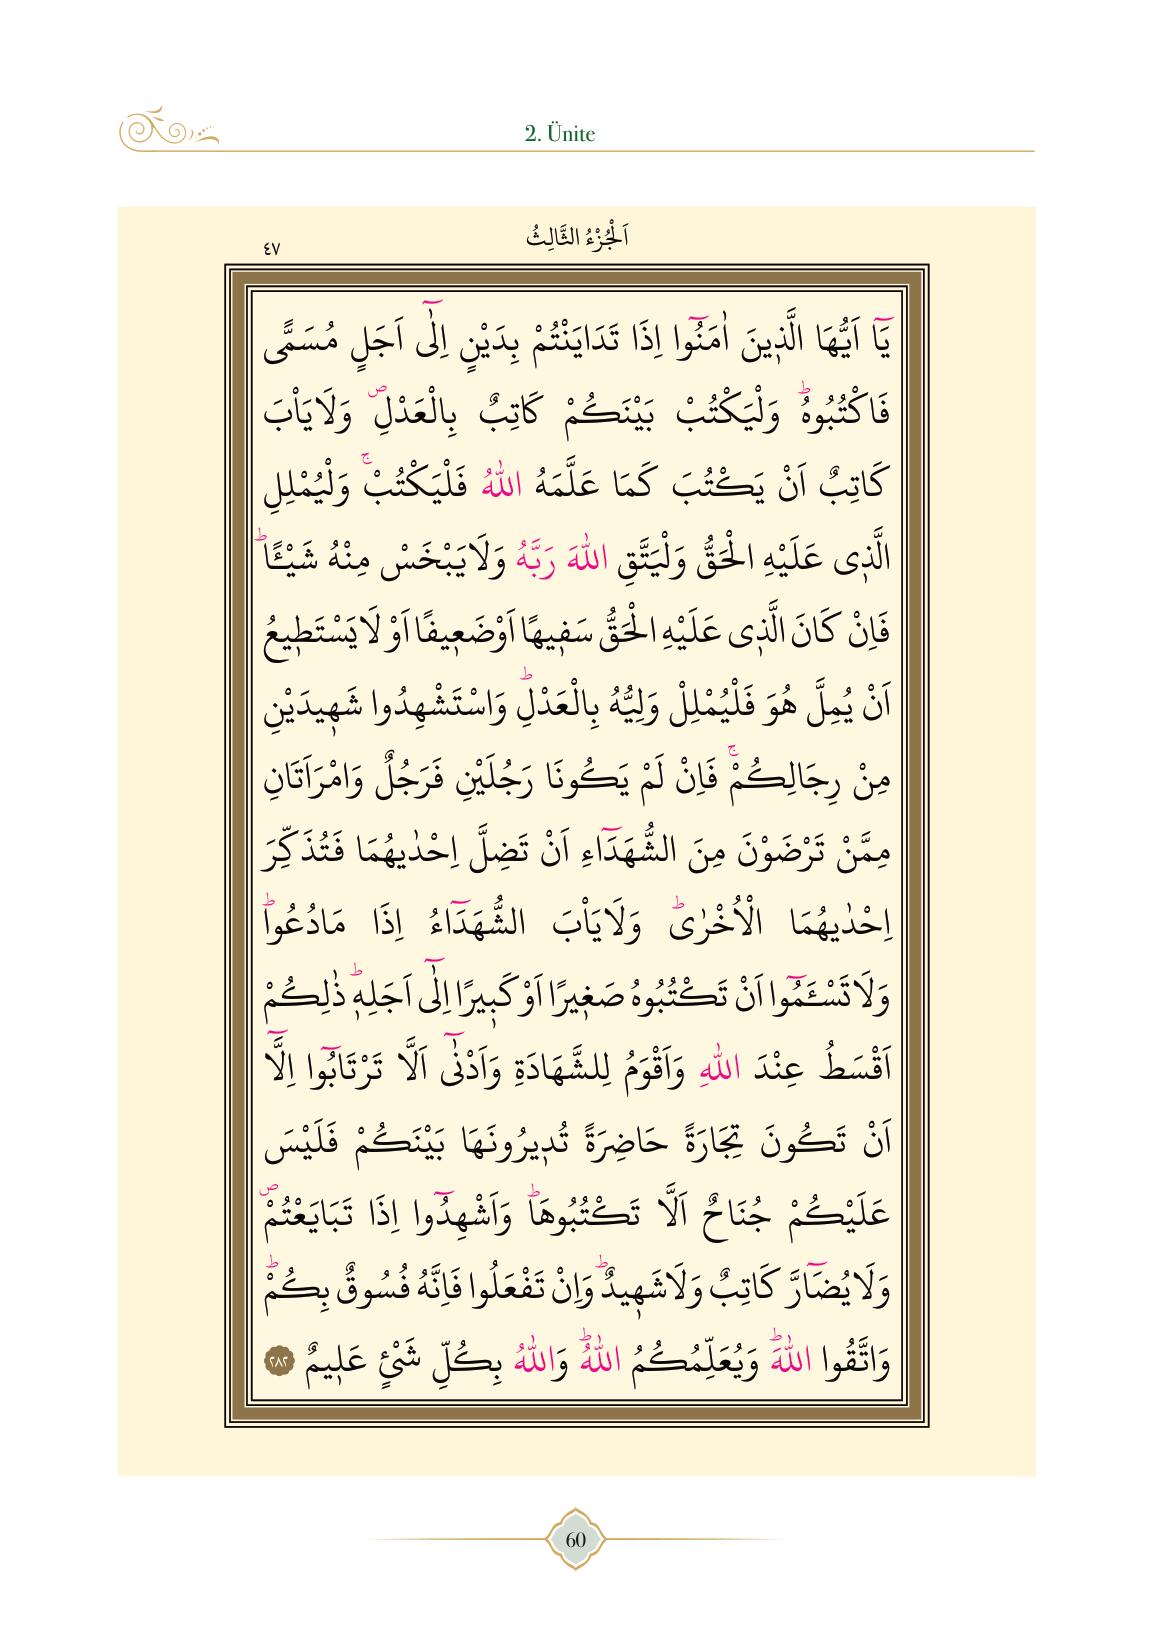 2. Ünite
اَلْجُزْءُ الثَّالِثُ
٤٧
يَٓا اَيُّهَا الَّذ۪ينَ اٰمَنُٓوا اِذَا تَدَايَنْتُمْ بِدَيْنٍ اِلٰٓى اَجَلٍ مُسَمًّى
فَاكْتُبُوهُۜ وَلْيَكْتُبْ بَيْنَكُمْ كَاتِبٌ بِالْعَدْلِۖ وَلَا يَأْبَ
كَاتِبٌ اَنْ يَكْتُبَ كَمَا عَلَّمَهُ اللّٰهُ فَلْيَكْتُبْۚ وَلْيُمْلِلِ
الَّذ۪ى عَلَيْهِ الْحَقُّ وَلْيَتَّقِ اللّٰهَ رَبَّهُ وَلَا يَبْخَسْ مِنْهُ شَيْـًٔاۜ
فَاِنْ كَانَ الَّذ۪ى عَلَيْهِ الْحَقُّ سَف۪يهًا اَوْ ضَع۪يفًا اَوْ لَا يَسْتَط۪يعُ
اَنْ يُمِلَّ هُوَ فَلْيُمْلِلْ وَلِيُّهُ بِالْعَدْلِۜ وَاسْتَشْهِدُوا شَه۪يدَيْنِ
مِنْ رِجَالِكُمْۚ فَاِنْ لَمْ يَكُونَا رَجُلَيْنِ فَرَجُلٌ وَامْرَاَتَانِ
مِمَّنْ تَرْضَوْنَ مِنَ الشُّهَدَٓاءِ اَنْ تَضِلَّ اِحْدٰيهُمَا فَتُذَكِّرَ
اِحْدٰيهُمَا الْاُخْرٰىۜ وَلَا يَأْبَ الشُّهَدَٓاءُ اِذَا مَا دُعُواۜ
وَلَا تَسْـَٔمُٓوا اَنْ تَكْتُبُوهُ صَغ۪يرًا اَوْ كَب۪يرًا اِلٰٓى اَجَلِه۪ۜ ذٰلِكُمْ
اَقْسَطُ عِنْدَ اللّٰهِ وَاَقْوَمُ لِلشَّهَادَةِ وَاَدْنٰٓى اَلَّا تَرْتَابُٓوا اِلَّٓا
اَنْ تَكُونَ تِجَارَةً حَاضِرَةً تُد۪يرُونَهَا بَيْنَكُمْ فَلَيْسَ
عَلَيْكُمْ جُنَاحٌ اَلَّا تَكْتُبُوهَاۜ وَاَشْهِدُٓوا اِذَا تَبَايَعْتُمْۖ
وَلَا يُضَٓارَّ كَاتِبٌ وَلَا شَه۪يدٌۜ وَاِنْ تَفْعَلُوا فَاِنَّهُ فُسُوقٌ بِكُمْۜ
وَاتَّقُوا اللّٰهَۜ وَيُعَلِّمُكُمُ اللّٰهُۜ وَاللّٰهُ بِكُلِّ شَيْئٍ عَل۪يمٌ ٢٨٢
60